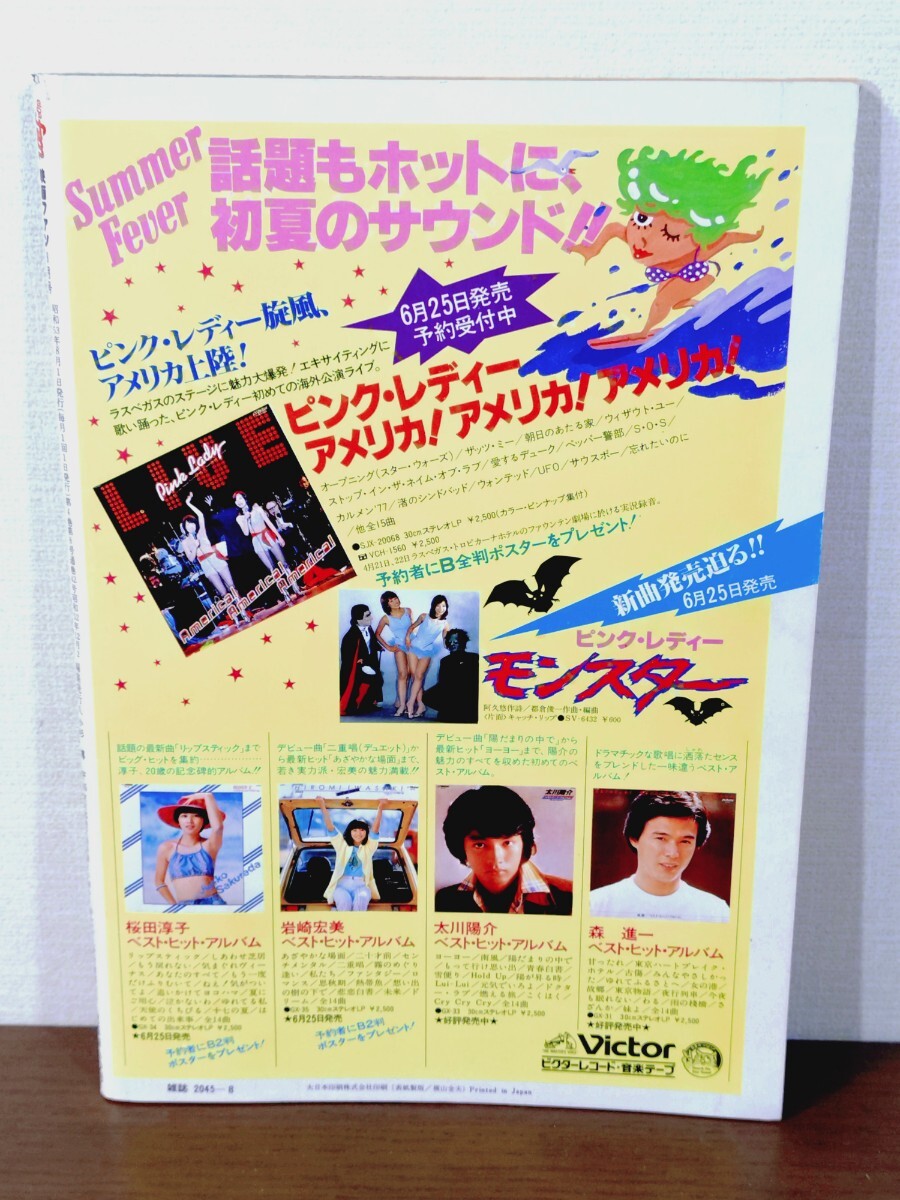 Summer
Fever
話題もホットに、
初夏のサウンド!!
ピンク・レディー旋風、
アメリカ上陸!
6月25日発売
予約受付中
ラスベガスのステージに魅力大爆発! エキサイティングに
歌い踊った、ピンク・レディー初めての海外公演ライブ。
ピンク・レディー
アメリカ! アメリカ! アメリカ!
オープニング(スター・ウォーズ)/ザッツ・ミー/朝日のあたる家/ウィザウト・ユー/
ストップ・イン・ザ・ネイム・オブ・ラブ/愛するデューク/ペッパー警部/S・O・S/
カルメン'77/渚のシンドバッド/ウォンテッド/UFO/サウスポー/忘れたいのに
/他全15曲
●SJX-20068 30cmステレオLP ¥2,500(カラー・ピンナップ集付)
VCH-1560 ¥2,500
4月21日、22日ラスベガス・トロピカーナホテルのファウンテン劇場に於ける実況録音。
予約者にB全判ポスターをプレゼント!
LIVE
Pink Lady
America! America! America!
新曲発売迫る!!
6月25日発売
ピンク・レディー
モンスター
阿久悠作詩/都倉俊一作曲・編曲
(片面)キャッチ・リップ●SV-6432 ¥600
話題の最新曲「リップスティック」まで
ビッグ・ヒットを集約
淳子、20歳の記念碑的アルバム!!
Junko
Sakurada
桜田淳子
ベスト・ヒット・アルバム
リップスティック/しあわせ芝居
/もう戻れない/気まぐれヴィー
ナス/あなたのすべて/もう一度
だけふりむいて/ねえ!気がつい
てよ/追いかけてヨコハマ/夏に
ご用心/泣かないわ/ゆれてる私
/天使のくちびる/十七の夏/は
じめての出来事/全14曲
●GX-34 30cmステレオLP ¥2,500
★6月25日発売
予約者にB2判
ポスターをプレゼント!
デビュー曲「二重唱(デュエット)」か
ら最新ヒット「あざやかな場面」まで、
若き実力派・宏美の魅力満載!!
HIROMI IWASAKI
岩崎宏美
ベスト・ヒット・アルバム
あざやかな場面/二十才前/セン
チメンタル/二重唱/霧のめぐり
逢い/私たち/ファンタジー/ロ
マンス/思秋期/熱帯魚/想い出
の樹の下で/悲恋白書/未来/ド
リーム/全14曲
●GX-35 30cmステレオLP ¥2,500
★6月25日発売
予約者にB2判
ポスターをプレゼント!
デビュー曲「陽だまりの中で」から
最新ヒット「ヨーヨー」まで、陽介の
魅力のすべてを収めた初めてのベ
スト・アルバム。
太川陽介
太川陽介
ベスト・ヒット・アルバム
ヨーヨー/南風/陽だまりの中で
/もって行け思い出/青春白書/
雪便り/Hold Up/陽が昇る時/
Lui-Lui/元気でいろよ/ドクタ
ー・ラブ/燃える旅/こくはく/
Cry Cry Cry/全14曲
●GX-33 30cmステレオLP ¥2,500
★好評発売中★
ドラマチックな歌唱に洒落たセンス
をブレンドした一味違うベスト・ア
ルバム!
森 進一
ベスト・ヒット・アルバム
甘ったれ/東京ハートブレイク・
ホテル/古傷/みんなやさしかっ
た/ゆれてふるさとへ/女の港/
故郷/東京物語/夜行列車/今夜
も眠れない/わる/雨の桟橋/さ
ざんか/妹よ/全14曲
●GX-31 30cmステレオLP ¥2,500
★好評発売中★
Victor
ビクターレコード・音楽テープ
雑誌 2045-8
大日本印刷株式会社印刷 Printed in Japan